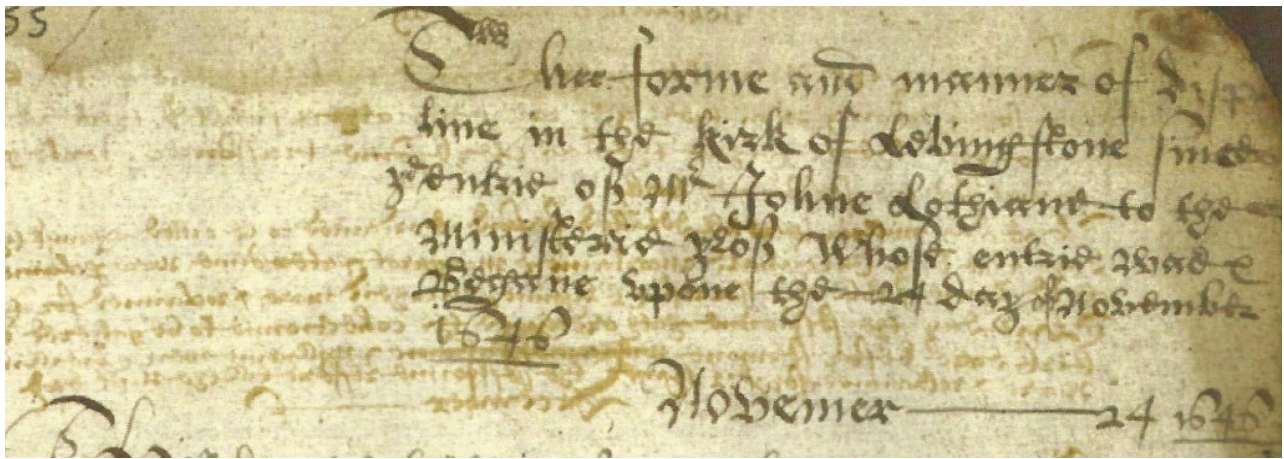 55
Thee forme and manner of discip
line in the kirk of Levingstone since
yͤ entrie off Mr Johne Lothiane to the
Ministerie yroff whose entrie was
Begane upone the 24 day of November
1646
Novemer 24 1646